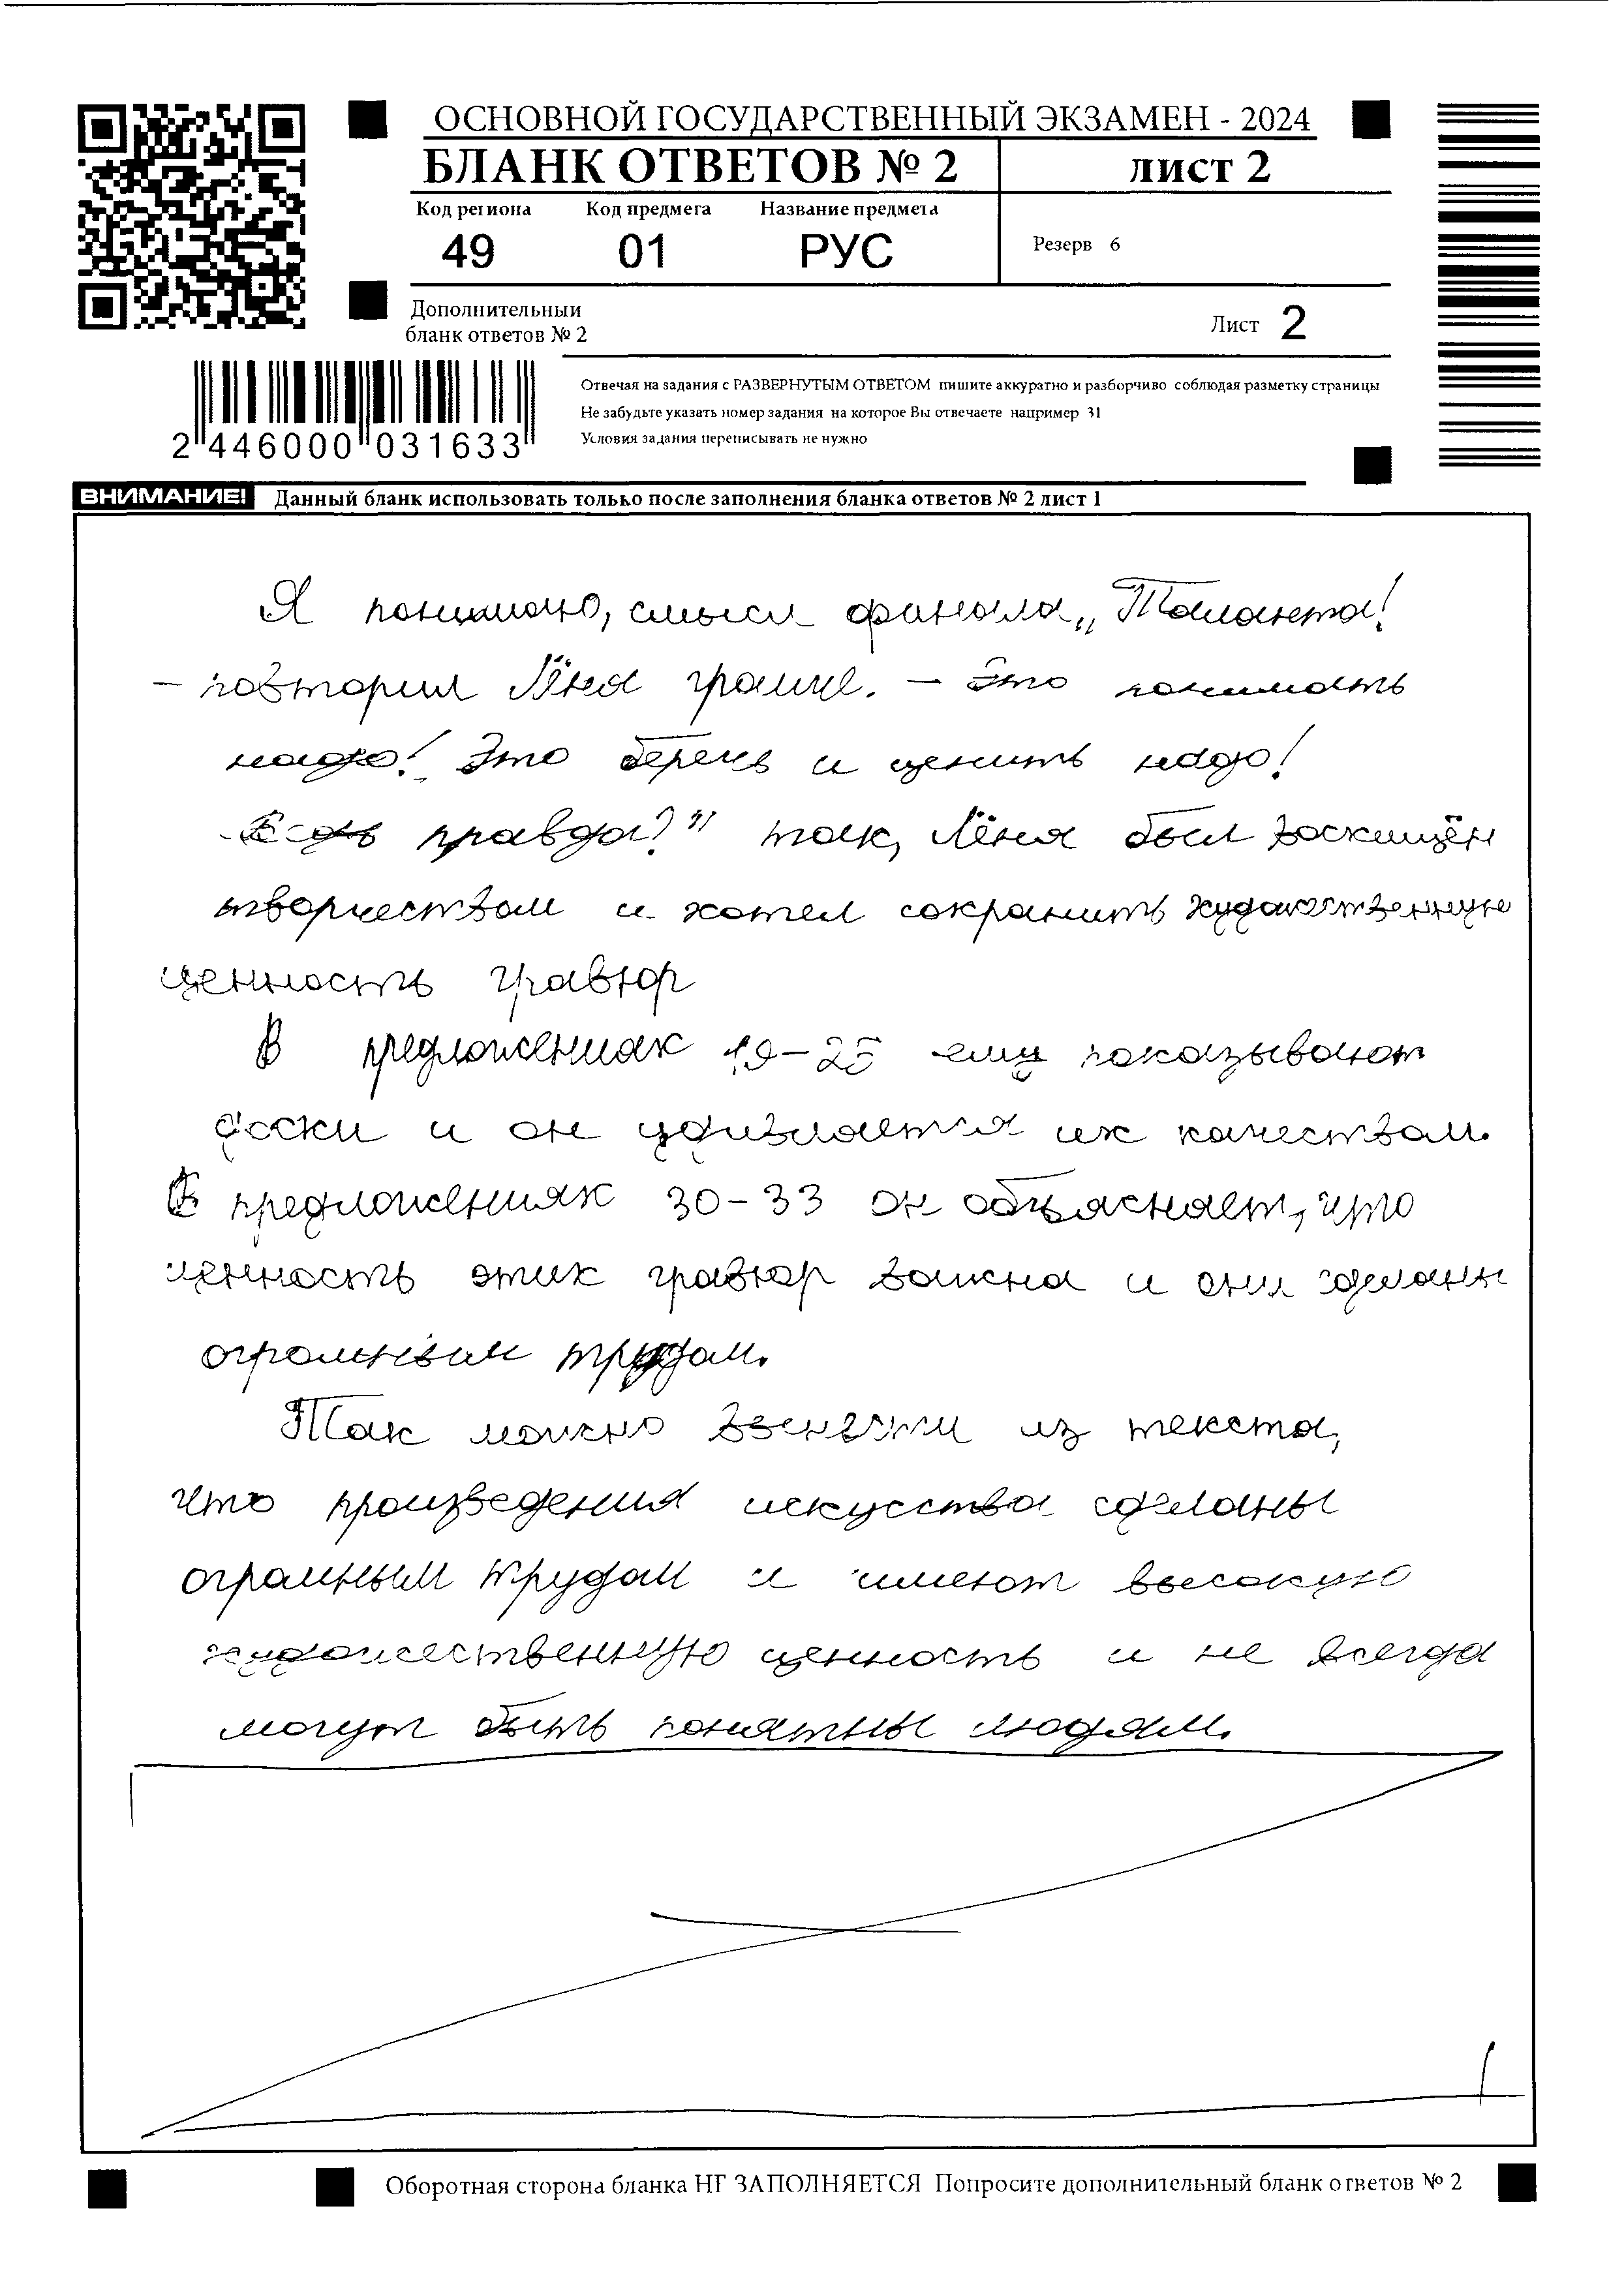 ОСНОВНОЙ ГОСУДАРСТВЕННЫЙ ЭКЗАМЕН - 2024
БЛАНК ОТВЕТОВ № 2
ЛИСТ 2
Код региона Код предмета Название предмета
49 01 РУС
Резерв 6
Дополнительный
бланк ответов № 2
Лист 2
Отвечая на задания с РАЗВЕРНУТЫМ ОТВЕТОМ пишите аккуратно и разборчиво соблюдая разметку страницы
Не забудьте указать номер задания на которое Вы отвечаете например 31
Условия задания переписывать не нужно
2 446000 031633
ВНИМАНИЕ! Данный бланк использовать только после заполнения бланка ответов № 2 лист 1
Я понимаю, смысл финала „Таланта!
– повторил Лёня громче. – Это понимать
надо! Это беречь и ценить надо!
Ведь правда?" так, Лёня был восхищён
творчеством и хотел сохранить художественную
ценность гравюр
В предложениях 19–25 ему показывают
доски и он удивляется их качествам.
В предложениях 30–33 он объясняет, что
ценность этих гравюр важна и они сделаны
огромным трудом.
Так можно вынести из текста,
что произведения искусства сделаны
огромным трудом и имеют высокую
художественную ценность и не всегда
могут быть понятны людям.
Оборотная сторона бланка НЕ ЗАПОЛНЯЕТСЯ Попросите дополнительный бланк ответов № 2